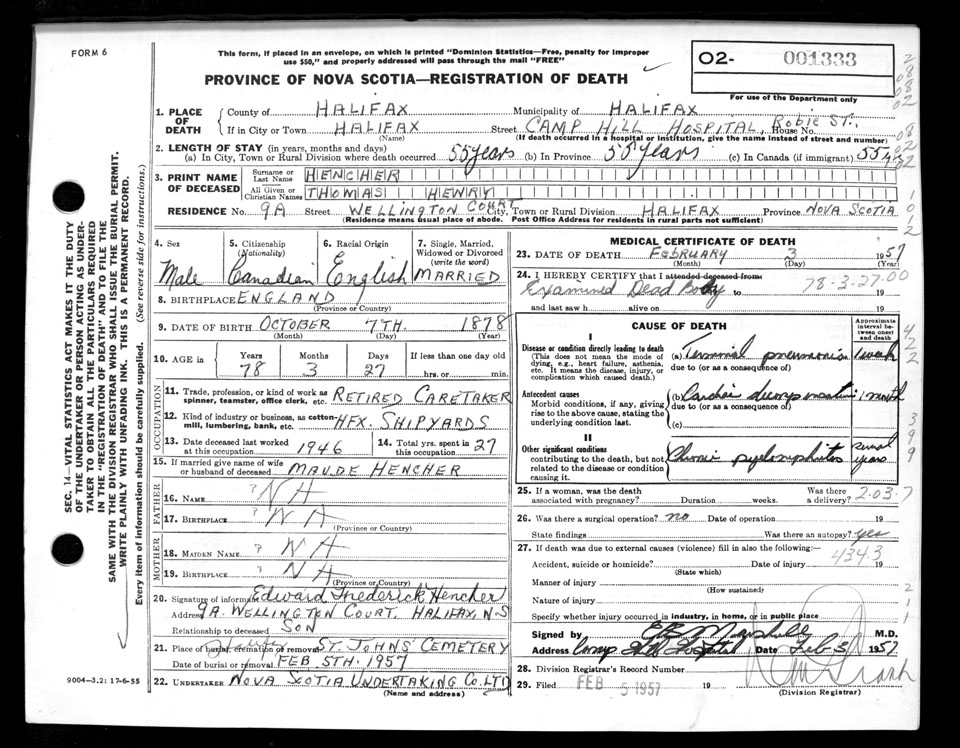 FORM 6
This form, if placed in an envelope, on which is printed "Dominion Statistics—Free, penalty for improper
use $50," and properly addressed will pass through the mail "FREE"
PROVINCE OF NOVA SCOTIA—REGISTRATION OF DEATH
O2- 001333
For use of the Department only
SEC. 14—VITAL STATISTICS ACT MAKES IT THE DUTY
OF THE UNDERTAKER OR PERSON ACTING AS UNDER-
TAKER TO OBTAIN ALL THE PARTICULARS REQUIRED
IN THE "REGISTRATION OF DEATH" AND TO FILE THE
SAME WITH THE DIVISION REGISTRAR WHO SHALL ISSUE THE BURIAL PERMIT.
WRITE PLAINLY WITH UNFADING INK. THIS IS A PERMANENT RECORD.
Every item of information should be carefully supplied. (See reverse side for instructions.)
1. PLACE OF DEATH
County of HALIFAX Municipality of HALIFAX
If in City or Town HALIFAX Street CAMP HILL HOSPITAL, House No. Robie ST.,
(Name) (If death occurred in a hospital or Institution, give the name instead of street and number)
2. LENGTH OF STAY (in years, months and days)
(a) In City, Town or Rural Division where death occurred 55 years (b) In Province 55 Years (c) In Canada (if immigrant) 55
3. PRINT NAME OF DECEASED
Surname or Last Name HENCHER
All Given or Christian Names THOMAS HENRY
RESIDENCE No. 9A Street WELLINGTON COURT City, Town or Rural Division HALIFAX Province NOVA SCOTIA
(Residence means usual place of abode. Post Office Address for residents in rural parts not sufficient)
4. Sex Male
5. Citizenship (Nationality) Canadian
6. Racial Origin English
7. Single, Married, Widowed or Divorced (write the word) MARRIED
8. BIRTHPLACE ENGLAND
(Province or Country)
9. DATE OF BIRTH OCTOBER 7TH. 1878
(Month) (Day) (Year)
10. AGE in Years 78 Months 3 Days 27 If less than one day old hrs. or min.
OCCUPATION
11. Trade, profession, or kind of work as spinner, teamster, office clerk, etc. RETIRED CARETAKER
12. Kind of industry or business, as cotton-mill, lumbering, bank, etc. HFX. SHIPYARDS
13. Date deceased last worked at this occupation 1946
14. Total yrs. spent in this occupation 27
15. If married give name of wife or husband of deceased MAUDE HENCHER
FATHER
16. NAME ? N A
17. BIRTHPLACE ? N A
(Province or Country)
MOTHER
18. MAIDEN NAME ? N A
19. BIRTHPLACE ? N A
(Province or Country)
20. Signature of informant Edward Frederick Hencher
Address 9A. WELLINGTON COURT, HALIFAX, N.S
Relationship to deceased SON
21. Place of burial, cremation or removal ST. JOHNS CEMETERY
Date of burial or removal FEB 5TH. 1957
22. UNDERTAKER NOVA SCOTIA UNDERTAKING CO. LTD
(Name and address)
9004-3.2: 17-6-55
MEDICAL CERTIFICATE OF DEATH
23. DATE OF DEATH FEBRUARY 3 1957
(Month) (Day) (Year)
24. I HEREBY CERTIFY that I attended deceased from
Examined Dead Body to 19
78-3-27-00
and last saw h alive on 19
CAUSE OF DEATH
Approximate interval between onset and death
I
Disease or condition directly leading to death
(This does not mean the mode of dying, e.g., heart failure, asthenia, etc. It means the disease, injury, or complication which caused death.)
(a) Terminal pneumonia 1 week
due to (or as a consequence of)
Antecedent causes
Morbid conditions, if any, giving rise to the above cause, stating the underlying condition last.
(b) Cardiac decompensation 1 month
due to (or as a consequence of)
(c)
II
Other significant conditions
contributing to the death, but not related to the disease or condition causing it.
Chronic pyelonephritis several years
25. If a woman, was the death associated with pregnancy? Duration weeks. Was there a delivery?
2-03-7
26. Was there a surgical operation? no Date of operation 19
State findings Was there an autopsy? yes
27. If death was due to external causes (violence) fill in also the following:
4343
Accident, suicide or homicide? Date of injury 19
(State which)
Manner of injury
(How sustained)
Nature of injury
Specify whether injury occurred in industry, in home, or in public place
Signed by M.D.
Address Camp Hill Hospital Date Feb 5 1957
28. Division Registrar's Record Number
29. Filed FEB 5 1957 19
(Division Registrar)